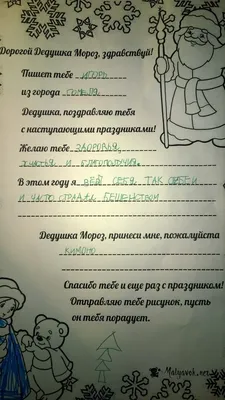 Дорогой Дедушка Мороз, здравствуй!
Пишет тебе ИГОРЬ
из города ГОМЕЛЯ
Дедушка, поздравляю тебя
с наступающими праздниками!
Желаю тебе ЗДОРОВЬЯ,
СЧАСТЬЯ И БЛАГОПОЛУЧИЯ.
В этом году я ВЁЛ СЕБЯ ТАК СЕБЕ
И ЧАСТО СТРАДАЛ БЕШЕНСТВОМ
Дедушка Мороз, принеси мне, пожалуйста
КИМОНО
Спасибо тебе и еще раз с праздником!
Отправляю тебе рисунок, пусть
он тебя порадует.
Malyavok.net